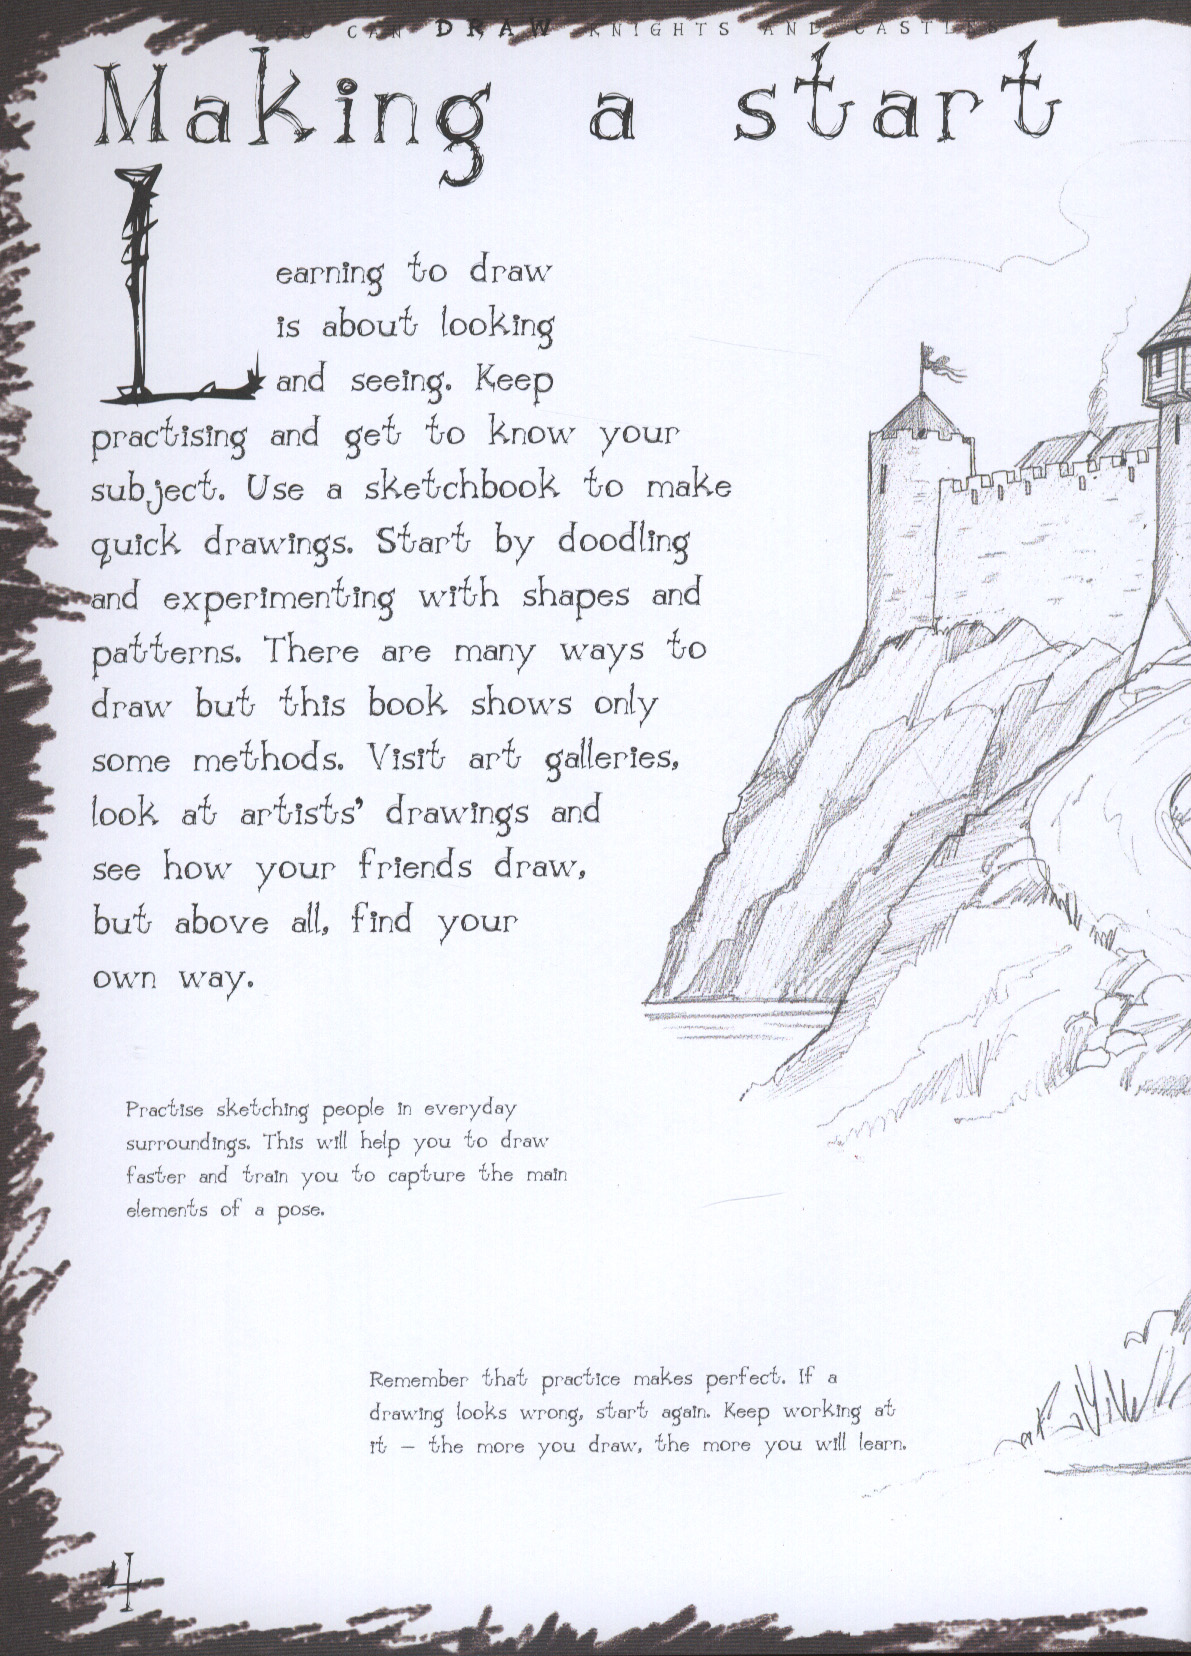 YOU CAN DRAW KNIGHTS AND CASTLES
Making a start
Learning to draw
is about looking
and seeing. Keep
practising and get to know your
subject. Use a sketchbook to make
quick drawings. Start by doodling
and experimenting with shapes and
patterns. There are many ways to
draw but this book shows only
some methods. Visit art galleries,
look at artists' drawings and
see how your friends draw,
but above all, find your
own way.
Practise sketching people in everyday
surroundings. This will help you to draw
faster and train you to capture the main
elements of a pose.
Remember that practice makes perfect. If a
drawing looks wrong, start again. Keep working at
it – the more you draw, the more you will learn.
4